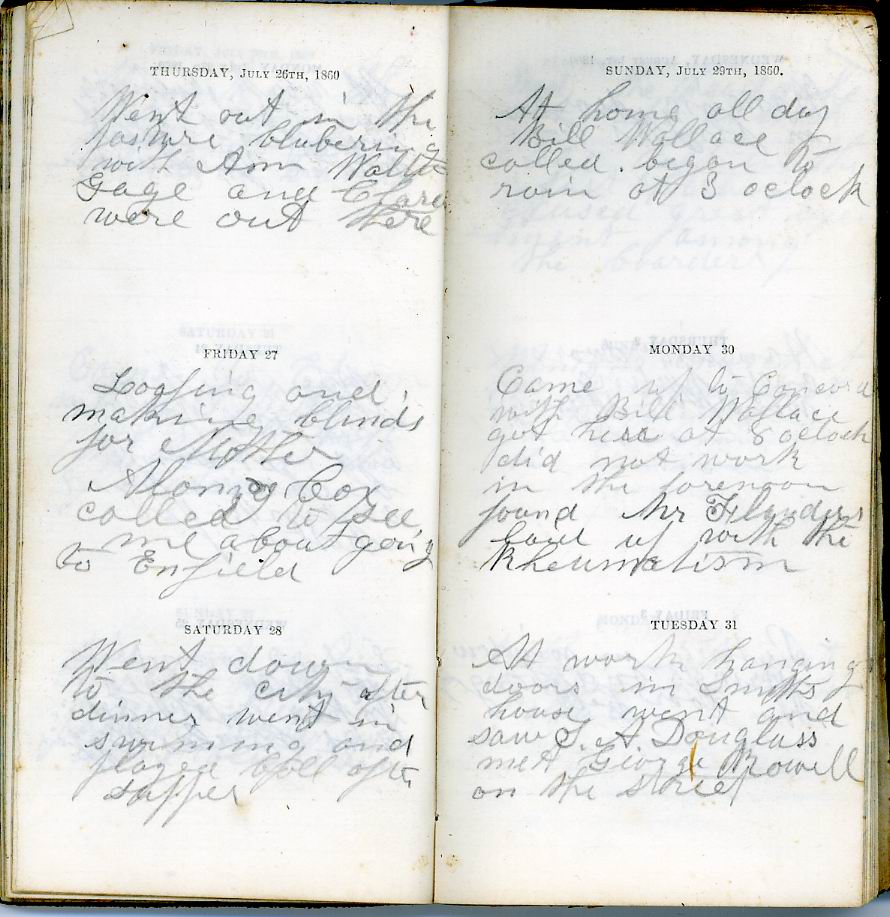 THURSDAY, JULY 26TH, 1860
Went out in the
pasture blubering
with Ann Walter
Gage and Clara
were out there
FRIDAY 27
Loafing and
making blinds
for Mother
Alonzo Cox
called to see
me about going
to Enfield
SATURDAY 28
Went down
to the city after
dinner went in
swimming and
played ball after
supper
SUNDAY, JULY 29TH, 1860.
At home all day
Bill Wallace
called. began to
rain at 3 oclock
MONDAY 30
Came up to Concord
with Bill Wallace
got here at 8 oclock
did not work
in the forenoon
found Mr Flanders
laid up with the
Rheumatism
TUESDAY 31
At work hanging
doors in Smiths
house went and
saw S. A Douglass
met George Rowell
on the street